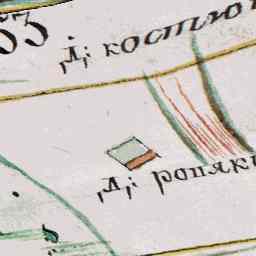 63.
д: костюк
д: ропяки